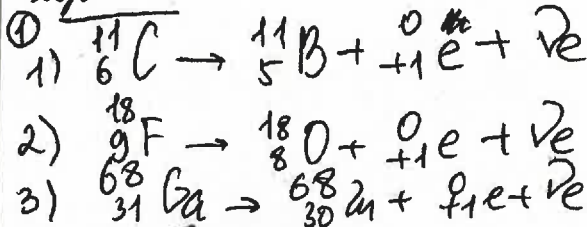 ①
1) ¹¹₆C → ¹¹₅B + ⁰₊₁e + νe
2) ¹⁸₉F → ¹⁸₈O + ⁰₊₁e + νe
3) ⁶⁸₃₁Ga → ⁶⁸₃₀Zn + ⁰₊₁e + νe